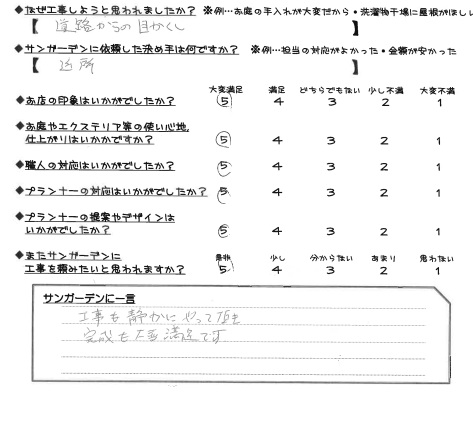 ◆なぜ工事しようと思われましたか？ ※例…お庭の手入れが大変だから・洗濯物干場に屋根がほしい
【 道路からの目かくし 】
◆サンガーデンに依頼した決め手は何ですか？ ※例…担当の対応がよかった・金額が安かった
【 近所 】
大変満足 満足 どちらでもない 少し不満 大変不満
◆お店の印象はいかがでしたか？ 5 4 3 2 1
◆お庭やエクステリア等の使い心地、
仕上がりはいかがですか？ 5 4 3 2 1
◆職人の対応はいかがでしたか？ 5 4 3 2 1
◆プランナーの対応はいかがでしたか？ 5 4 3 2 1
◆プランナーの提案やデザインは
いかがでしたか？ 5 4 3 2 1
◆またサンガーデンに 是非 少し 分からない あまり 思わない
工事を頼みたいと思われますか？ 5 4 3 2 1
サンガーデンに一言
工事も静かにやって頂き
完成も大変満足です